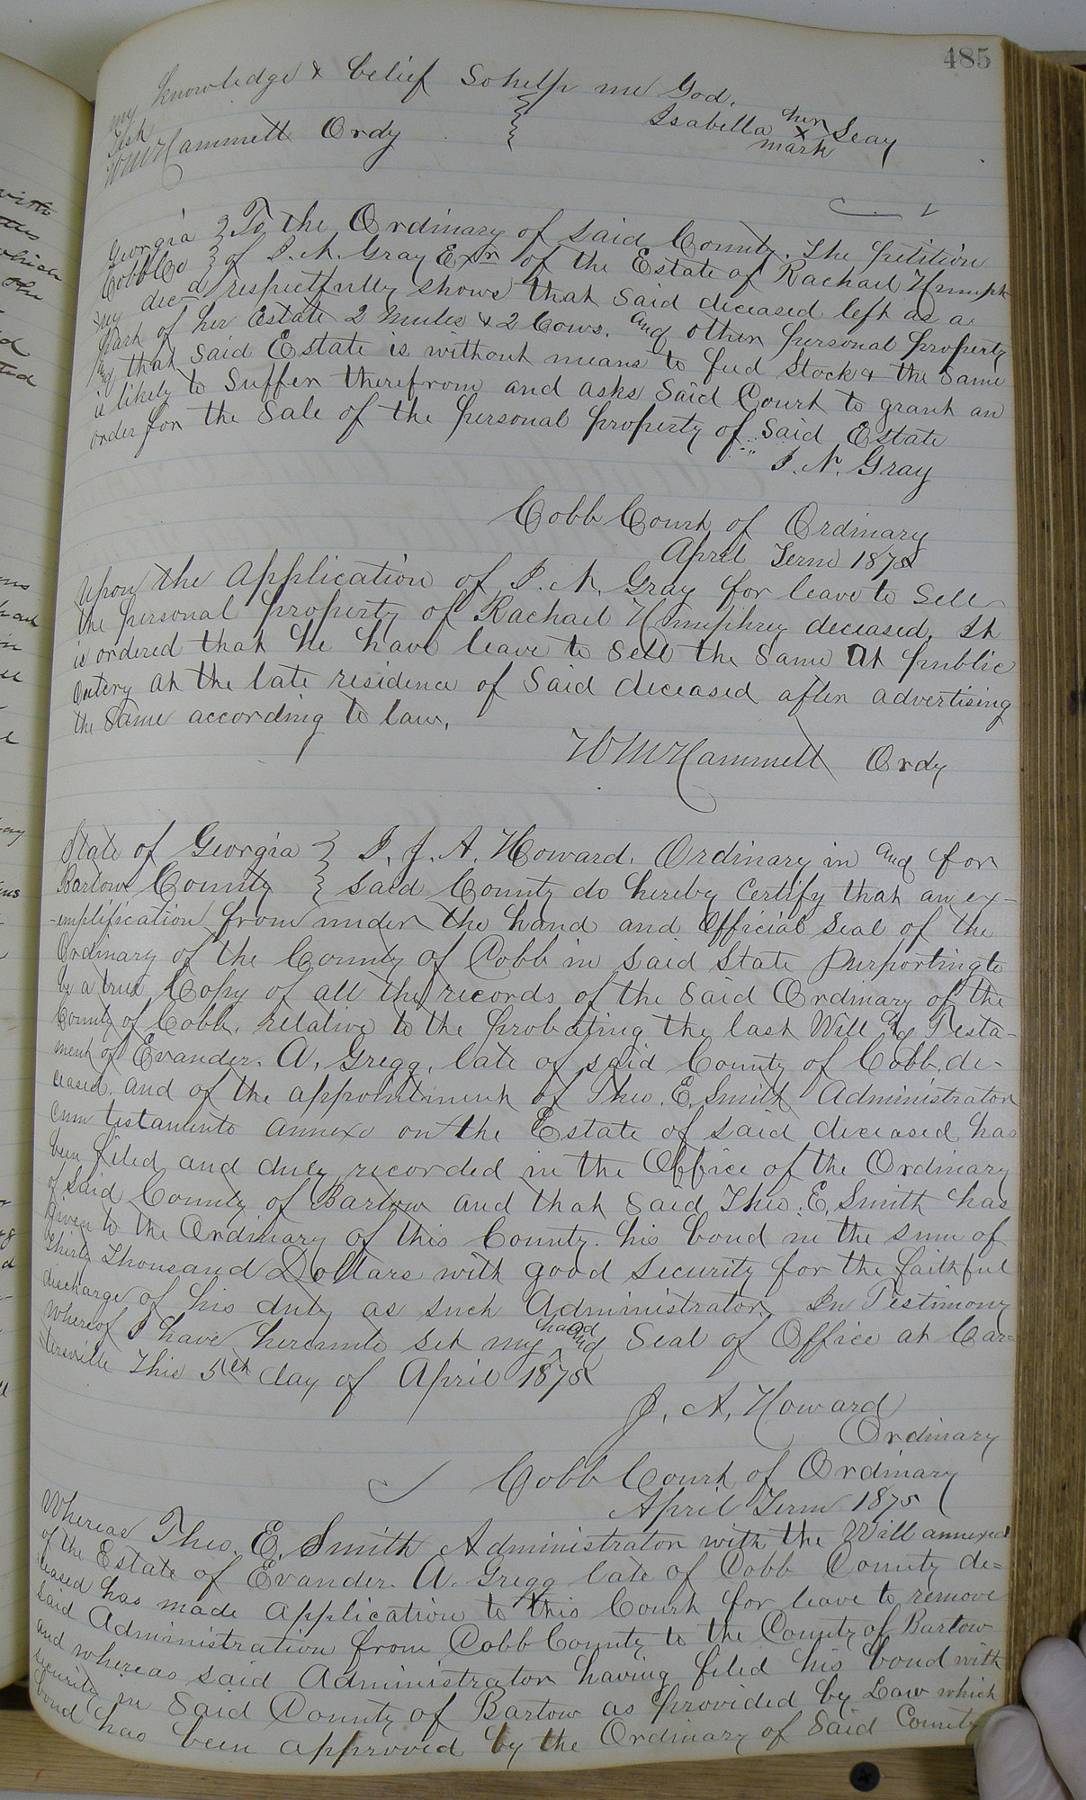 485
my knowledge & belief So help me God.
Isabella her x mark Seay
Wm Hammett Ordy
Georgia } To the Ordinary of said County. The petition
Cobb Co } of I. N. Gray Exr of the Estate of Rachael Humph
-rey decd respectfully shows that said deceased left as a
part of her Estate 2 Mules & 2 Cows. and other personal property
and that said Estate is without means to feed stock & the same
is likely to Suffer therefrom and asks said Court to grant an
order for the Sale of the personal property of said Estate
I. N. Gray
Cobb Court of Ordinary
April Term 1875
Upon the application of I. N. Gray for leave to Sell
the personal property of Rachael Humphrey deceased. It
is ordered that he have leave to Sell the Same at public
outcry at the late residence of Said deceased after advertising
the Same according to law.
Wm Hammett Ordy
State of Georgia } I, J. A. Howard. Ordinary in and for
Bartow County } said County do hereby Certify that an ex-
-emplification from under the hand and Official Seal of the
Ordinary of the County of Cobb in said State purporting to
be a true Copy of all the records of the Said Ordinary of the
County of Cobb. relative to the probating the last Will and Testa-
ment of Evander. A. Gregg, late of said County of Cobb, de-
ceased. and of the appointment of Theo. E. Smith Administrator
cum testamento annexo on the Estate of said deceased has
been filed and duly recorded in the Office of the Ordinary
of Said County of Bartow and that Said Theo. E. Smith has
given to the Ordinary of this County. his bond in the sum of
thirty Thousand Dollars with good security for the faithful
discharge of his duty as such Administrator, In Testimony
Whereof I have hereunto set my hand and Seal of Office at Car-
tersville This 5th day of April 1875
J. A. Howard
Ordinary
Cobb Court of Ordinary
April Term 1875
Whereas Theo. E. Smith Administrator with the Will annexed
of the Estate of Evander. A. Gregg late of Cobb County de=
ceased has made Application to this Court for leave to remove
said Administration from Cobb County to the County of Bartow
and whereas said Administrator having filed his bond with
security in Said County of Bartow as provided by Law which
bond has been approved by the Ordinary of Said County